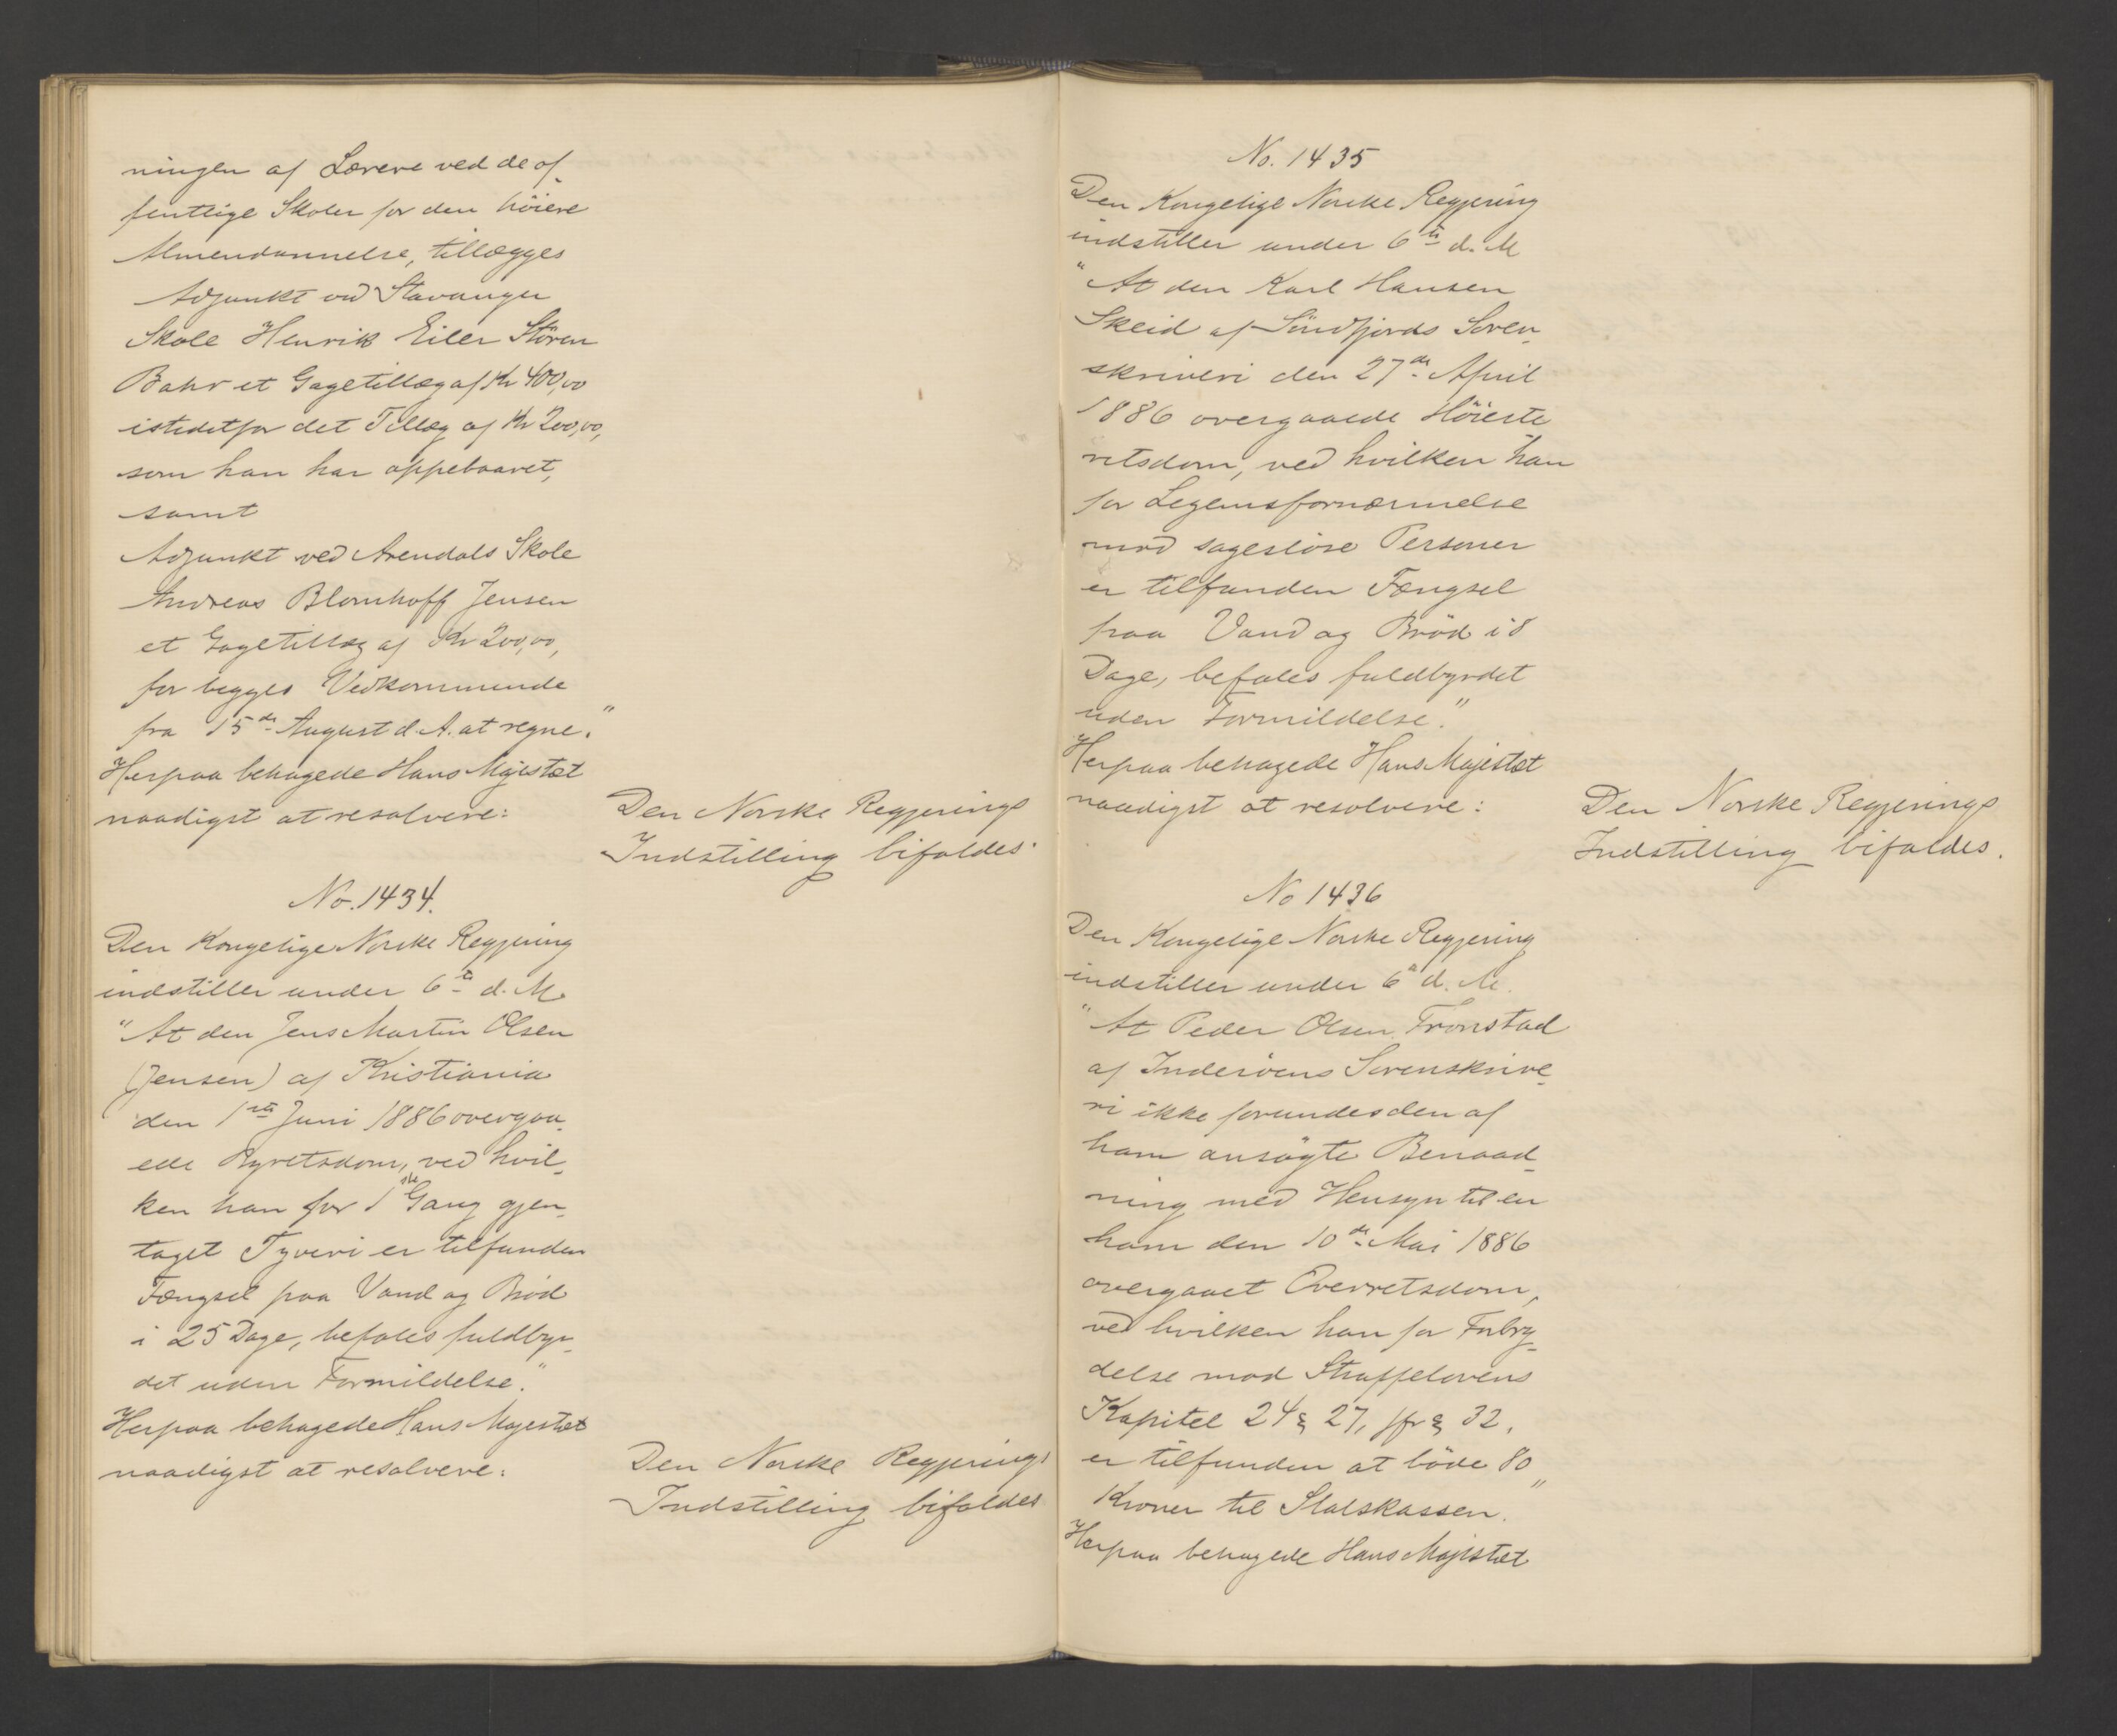 ningen af Lærere ved de of-
fentlige Skoler for den höiere
Almendannelse, tillægges
Adjunkt ved Stavanger
Skole Henrik Eiler Stören
Bahr et Gagetillæg af Kr 400,00
istedetfor det Tillæg af Kr 200,00,
som han har oppebaaret,
samt
Adjunkt ved Arendals Skole
Andreas Blomhoff Jensen
et Gagetillæg af Kr 200,00,
for begges Vedkommende
fra 15de August d. A. at regne."
Herpaa behagede Hans Majestæt
naadigst at resolvere:
Den Norske Regjerings
Indstilling bifaldes.
No. 1434.
Den Kongelige Norske Regjering
indstiller under 6te d. M.
"At den Jens Martin Olsen
(Jensen) af Kristiania
den 1ste Juni 1886 overgaa-
ede Byretsdom, ved hvil-
ken han for 1ste Gang gjen-
taget Tyveri er tilfunden
Fængsel paa Vand og Bröd
i 25 Dage, befales fuldbyr-
det uden Formildelse."
Herpaa behagede Hans Majestæt
naadigst at resolvere:
Den Norske Regjerings
Indstilling bifaldes
No. 1435
Den Kongelige Norske Regjering
indstiller under 6te d. M
"At den Karl Hansen
Skeid af Söndfjords Soren-
skriveri den 27de April
1886 overgaaede Höieste-
retsdom, ved hvilken han
for Legemsfornærmelse
mod sageslöse Personer
er tilfunden Fængsel
paa Vand og Bröd i 8
Dage, befales fuldbyrdet
uden Formildelse."
Herpaa behagede Hans Majestæt
naadigst at resolvere:
Den Norske Regjerings
Indstilling bifaldes.
No 1436
Den Kongelige Norske Regjering
indstiller under 6te d. M.
"At Peder Olsen Fronstad
af Inderöens Sorenskrive-
ri ikke forundes den af
ham ansögte Benaad-
ning med Hensyn til en
ham den 10de Mai 1886
overgaaet Overretsdom,
ved hvilken han for Forbry-
delse mod Straffelovens
Kapitel 24 § 27, jfr § 32,
er tilfunden at böde 80
Kroner til Statskassen."
Herpaa behagede Hans Majestæt